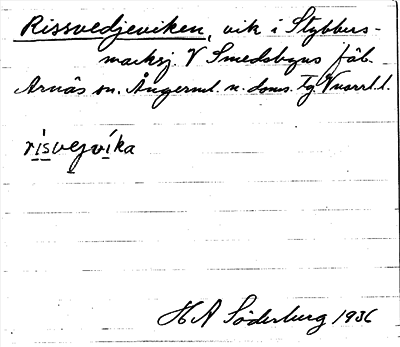 Rissvedjeviken, vik i Stybbers-
marksj. V Smedsbyns fäb.
Arnäs sn. Ångerml. n. doms. Tg Vnorrl. l.
risvejvíka
H A Söderberg 1936